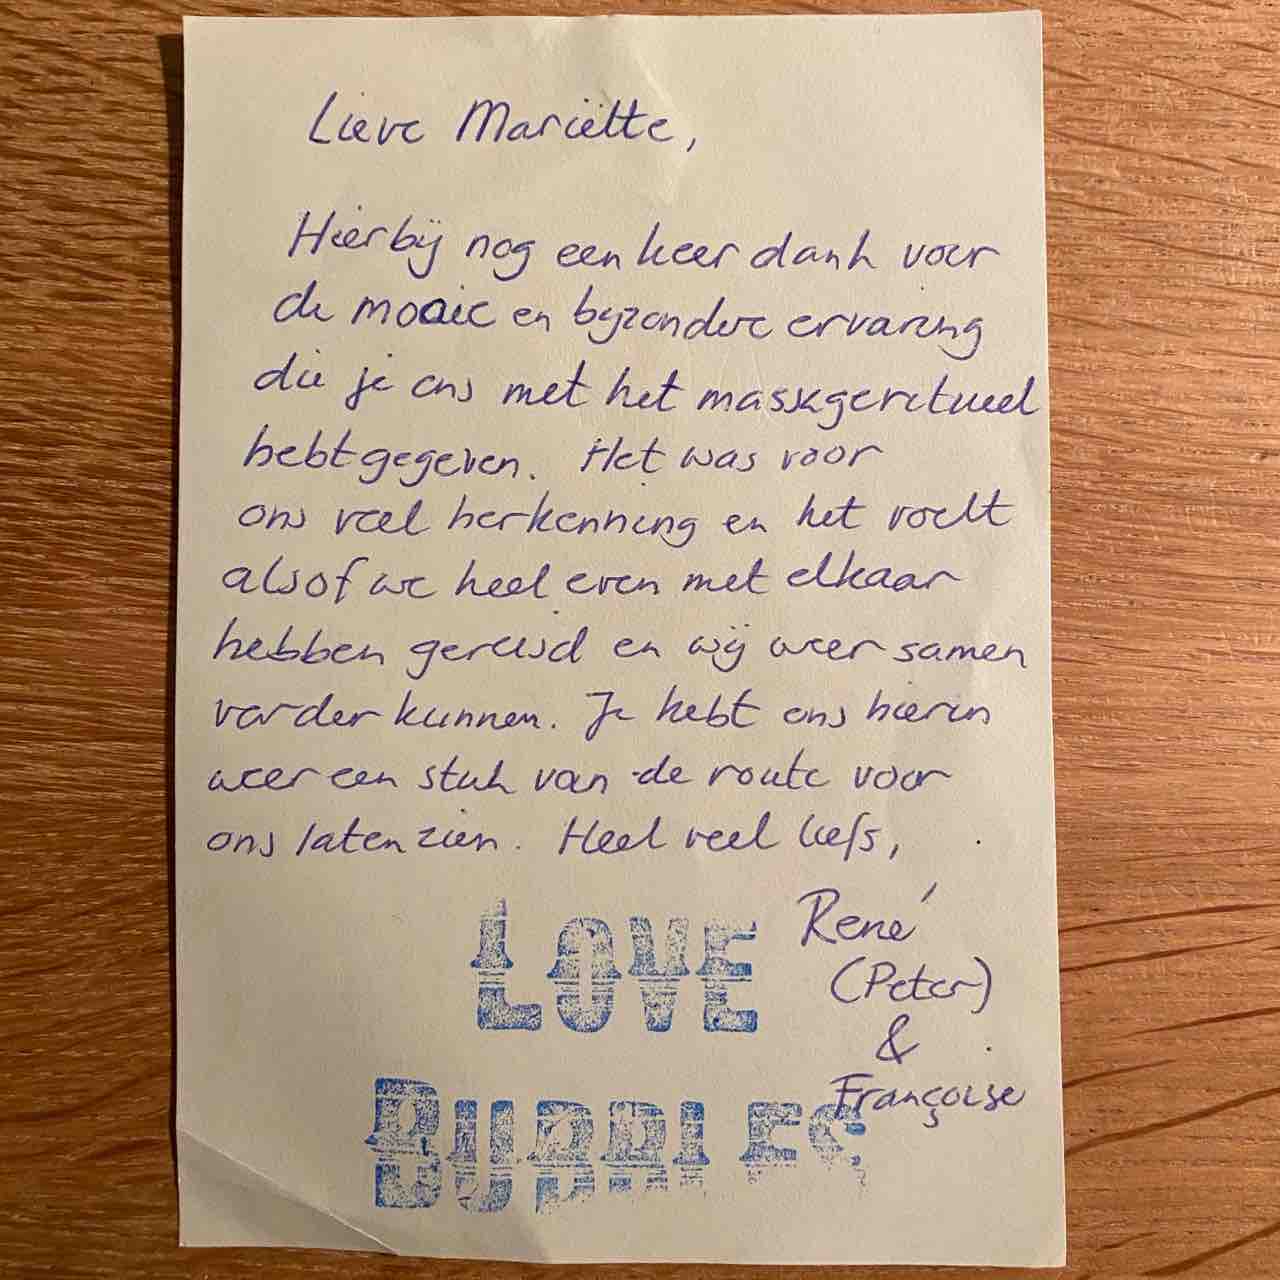 Lieve Mariëtte,
Hierbij nog een keer dank voor
de mooie en bijzondere ervaring
die je ons met het massageritueel
hebt gegeven. Het was voor
ons veel herkenning en het voelt
alsof we heel even met elkaar
hebben gereisd en wij weer samen
verder kunnen. Je hebt ons hierin
weer een stuk van de route voor
ons laten zien. Heel veel liefs,
René
(Peter)
&
Françoise
LOVE
BUBBLES